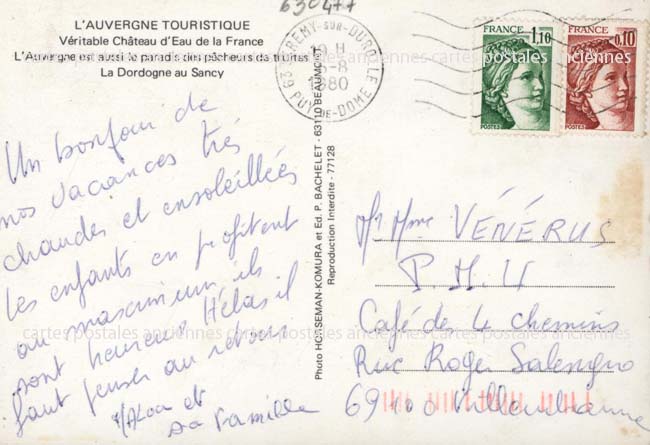 630477
L'AUVERGNE TOURISTIQUE
Véritable Château d'Eau de la France
L'Auvergne est aussi le paradis des pêcheurs de truites
La Dordogne au Sancy
63 ST REMY-SUR-DUROLLE
19 H
5-8
1980
PUY-DE-DOME
FRANCE
1,10
POSTES
FRANCE
0,10
POSTES
Un bonjour de
nos vacances trés
chaudes et ensoleillées
les enfants en profitent
au maximum, ils
sont heureux Hélas il
faut penser au retour
et
sa famille
Photo HORSEMAN-KOMURA et Ed. P. BACHELET - 63110 BEAUMONT
Reproduction Interdite - 77128
Mr Mme VÉNÉRUS
P.M.U
Café des 4 chemins
Rue Roger Salengro
69100 Villeurbanne
cartes postales anciennes cartes postales anciennes cartes postales anciennes